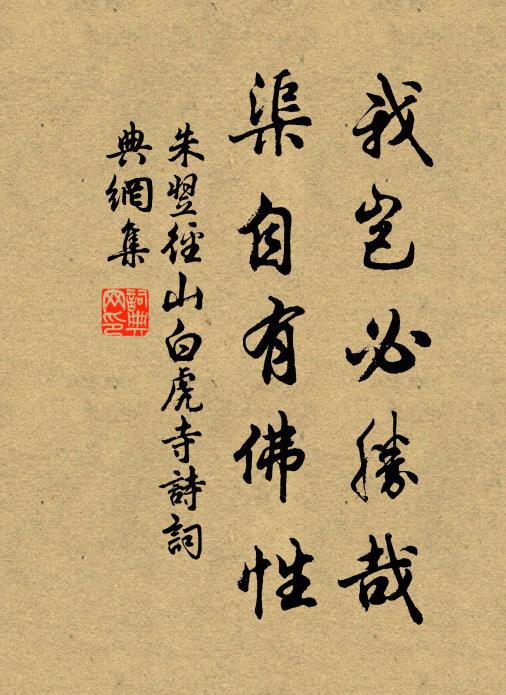 我豈必勝哉
渠自有佛性
朱翌徑山白虎寺詩詞
典網集
詞典
网印